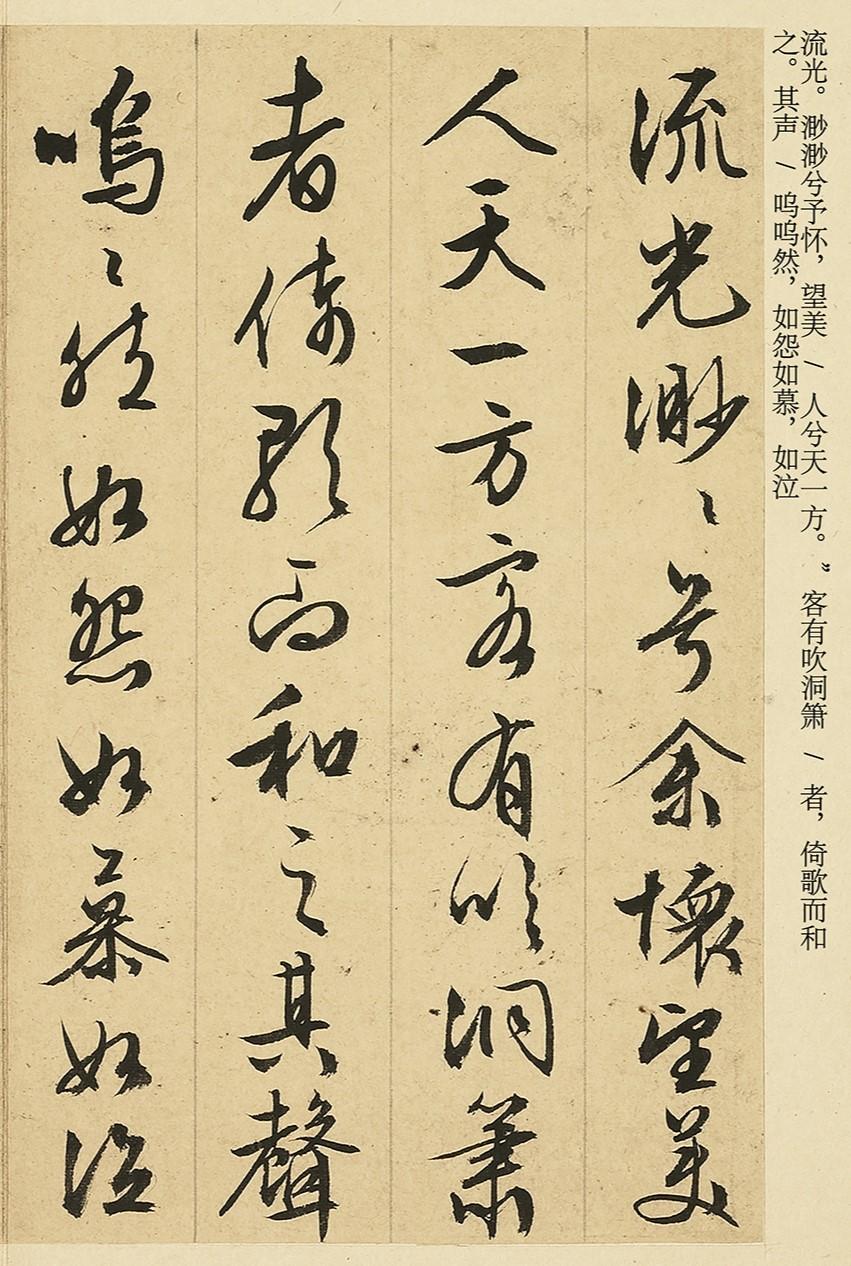 流光。渺渺兮予怀，望美 / 人兮天一方。” 客有吹洞箫 / 者，倚歌而和
之。其声 / 呜呜然，如怨如慕，如泣
流光渺〻兮余懷望美
人天一方客有吹洞簫
者倚歌而和之其聲
嗚〻然如怨如慕如泣